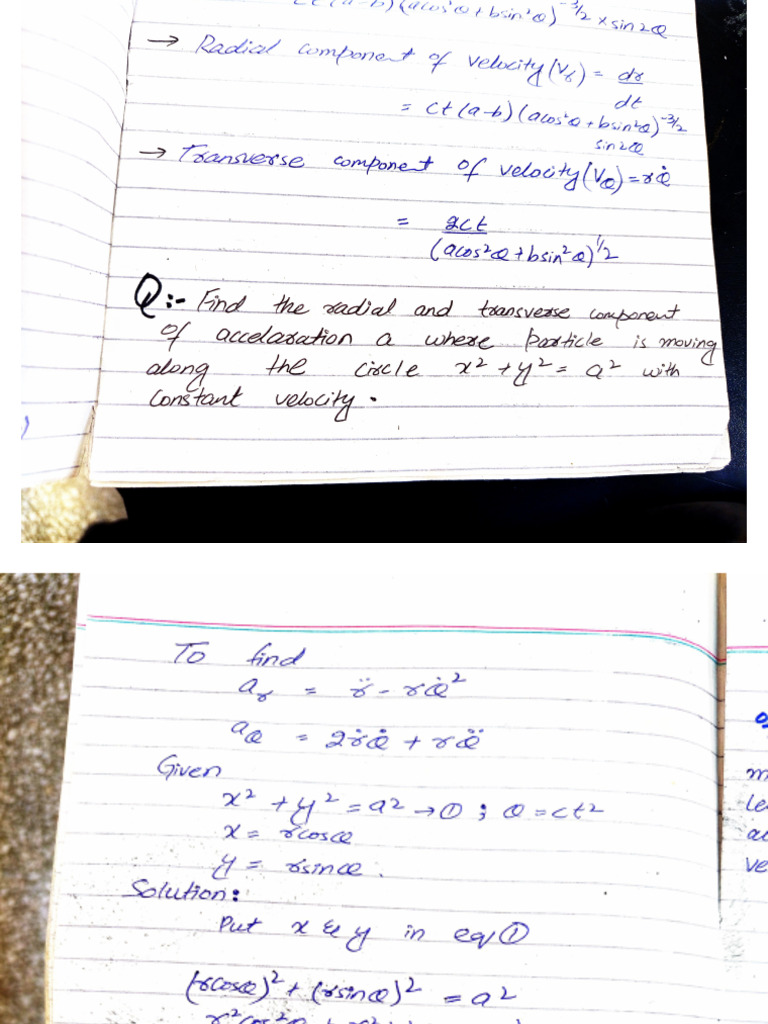 ct(a-b)(acos²θ+bsin²θ)^-3/2 × sin2θ
→ Radial component of velocity(Vr) = dr/dt
= ct(a-b)(acos²θ+bsin²θ)^-3/2
sin2θ
→ Transverse component of velocity(Vθ)=rθ̇
= 2ct/(acos²θ+bsin²θ)^1/2
Q:- Find the radial and transverse component
of accelaration a where particle is moving
along the circle x²+y²= a² with
constant velocity.
To find
ar = r̈ - rθ̇²
aθ = 2ṙθ̇ + rθ̈
Given
x²+y²=a²→①; θ=ct²
x= rcosθ
y= rsinθ.
Solution:
Put x & y in eq①
(rcosθ)²+(rsinθ)²=a²